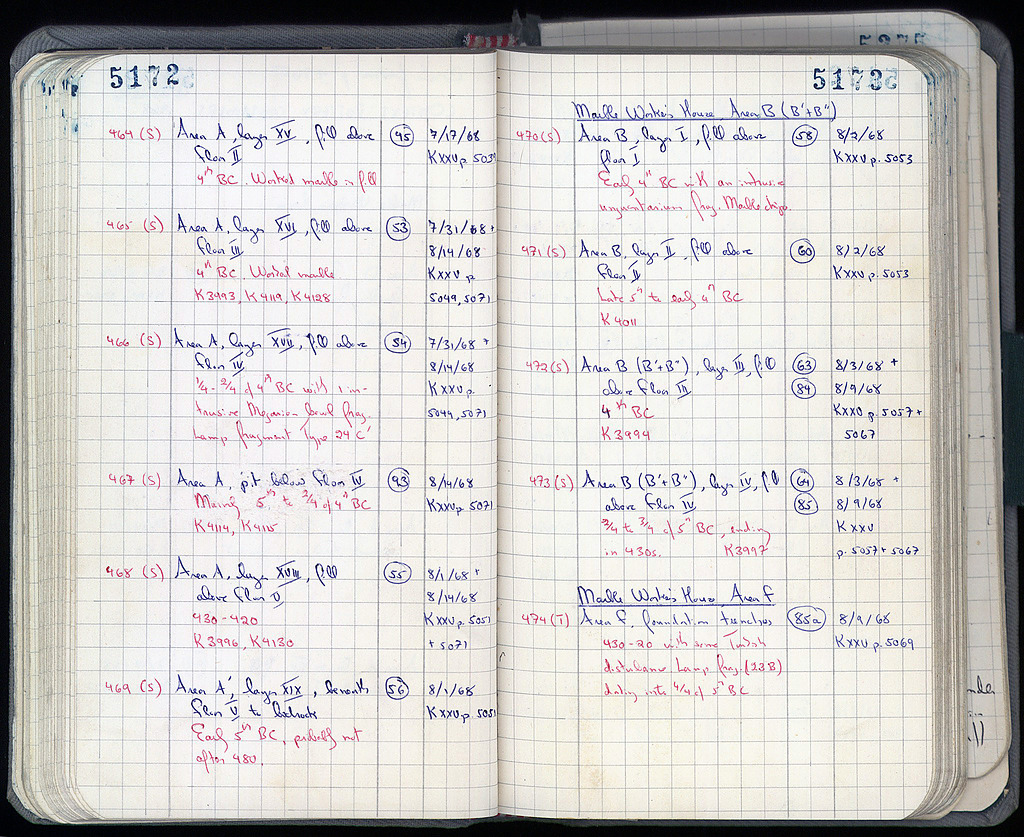 5172
464 (S) Area A, layer XV, fill above 45 7/17/68
floor II KXXV p. 5039
4th BC. Worked marble in fill
465 (S) Area A, layer XVI, fill above 53 7/31/68 +
floor III 8/14/68
4th BC. Worked marble KXXV p.
K3993, K4119, K4128 5049, 5071
466 (S) Area A, layer XVII, fill above 54 7/31/68 +
floor IV 8/14/68
1/4 - 2/4 of 4th BC with 1 in- KXXV p.
trusive Megarian bowl frag. 5049, 5071
Lamp fragment Type 24 C'
467 (S) Area A, pit below floor IV 93 8/14/68
Mainly 5th to 2/4 of 4th BC KXXV p. 5071
K4114, K4115
468 (S) Area A, layer XVIII, fill 55 8/1/68 +
above floor V 8/14/68
430-420 KXXV p. 5051
K3996, K4130 + 5071
469 (S) Area A', layer XIX, beneath 56 8/1/68
floor V to bedrock KXXV p. 5051
Early 5th BC, probably not
after 480.
5173
Marble Worker's House Area B (B'+B")
470 (S) Area B, layer I, fill above 58 8/2/68
floor I KXXV p. 5053
Early 4th BC with an intrusive
unguentarium frag. Marble chips.
471 (S) Area B, layer II, fill above 60 8/2/68
floor II KXXV p. 5053
Late 5th to early 4th BC
K4011
472 (S) Area B (B'+B"), layer III, fill 63 8/3/68 +
above floor III 84 8/9/68
4th BC KXXV p. 5057 +
K3994 5067
473 (S) Area B (B'+B"), layer IV, fill 64 8/3/68 +
above floor IV 85 8/9/68
2/4 to 3/4 of 5th BC, ending KXXV
in 430s. K3997 p. 5057 + 5067
Marble Worker's House Area F
474 (T) Area F, foundation trenches 85a 8/9/68
430-20 with some Turkish KXXV p. 5069
disturbance Lamp frag. (23B)
dating into 4/4 of 5th BC